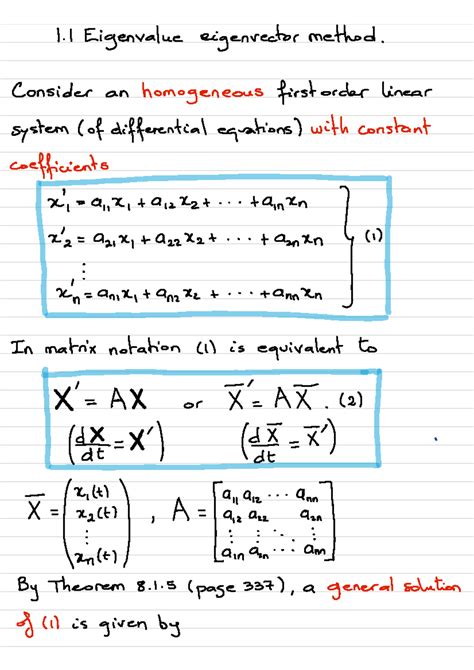 1.1 Eigenvalue eigenvector method.
Consider an homogeneous first order linear
system (of differential equations) with constant
coefficients
x'₁ = a₁₁x₁ + a₁₂x₂ + ··· + a₁ₙxₙ
x'₂ = a₂₁x₁ + a₂₂x₂ + ··· + a₂ₙxₙ (1)
⋮
x'ₙ = aₙ₁x₁ + aₙ₂x₂ + ··· + aₙₙxₙ
In matrix notation (1) is equivalent to
X' = AX or X̅' = AX̅. (2)
(dX/dt = X') (dX̅/dt = X̅')
X̅ = (x₁(t) x₂(t) ⋮ xₙ(t)) , A = [a₁₁ a₁₂ ··· aₙₙ
a₁₂ a₂₂ a₂ₙ
⋮ ⋮ ⋱ ⋮
a₁ₙ a₂ₙ ··· aₙₙ]
By Theorem 8.1.5 (page 337), a general solution
of (1) is given by